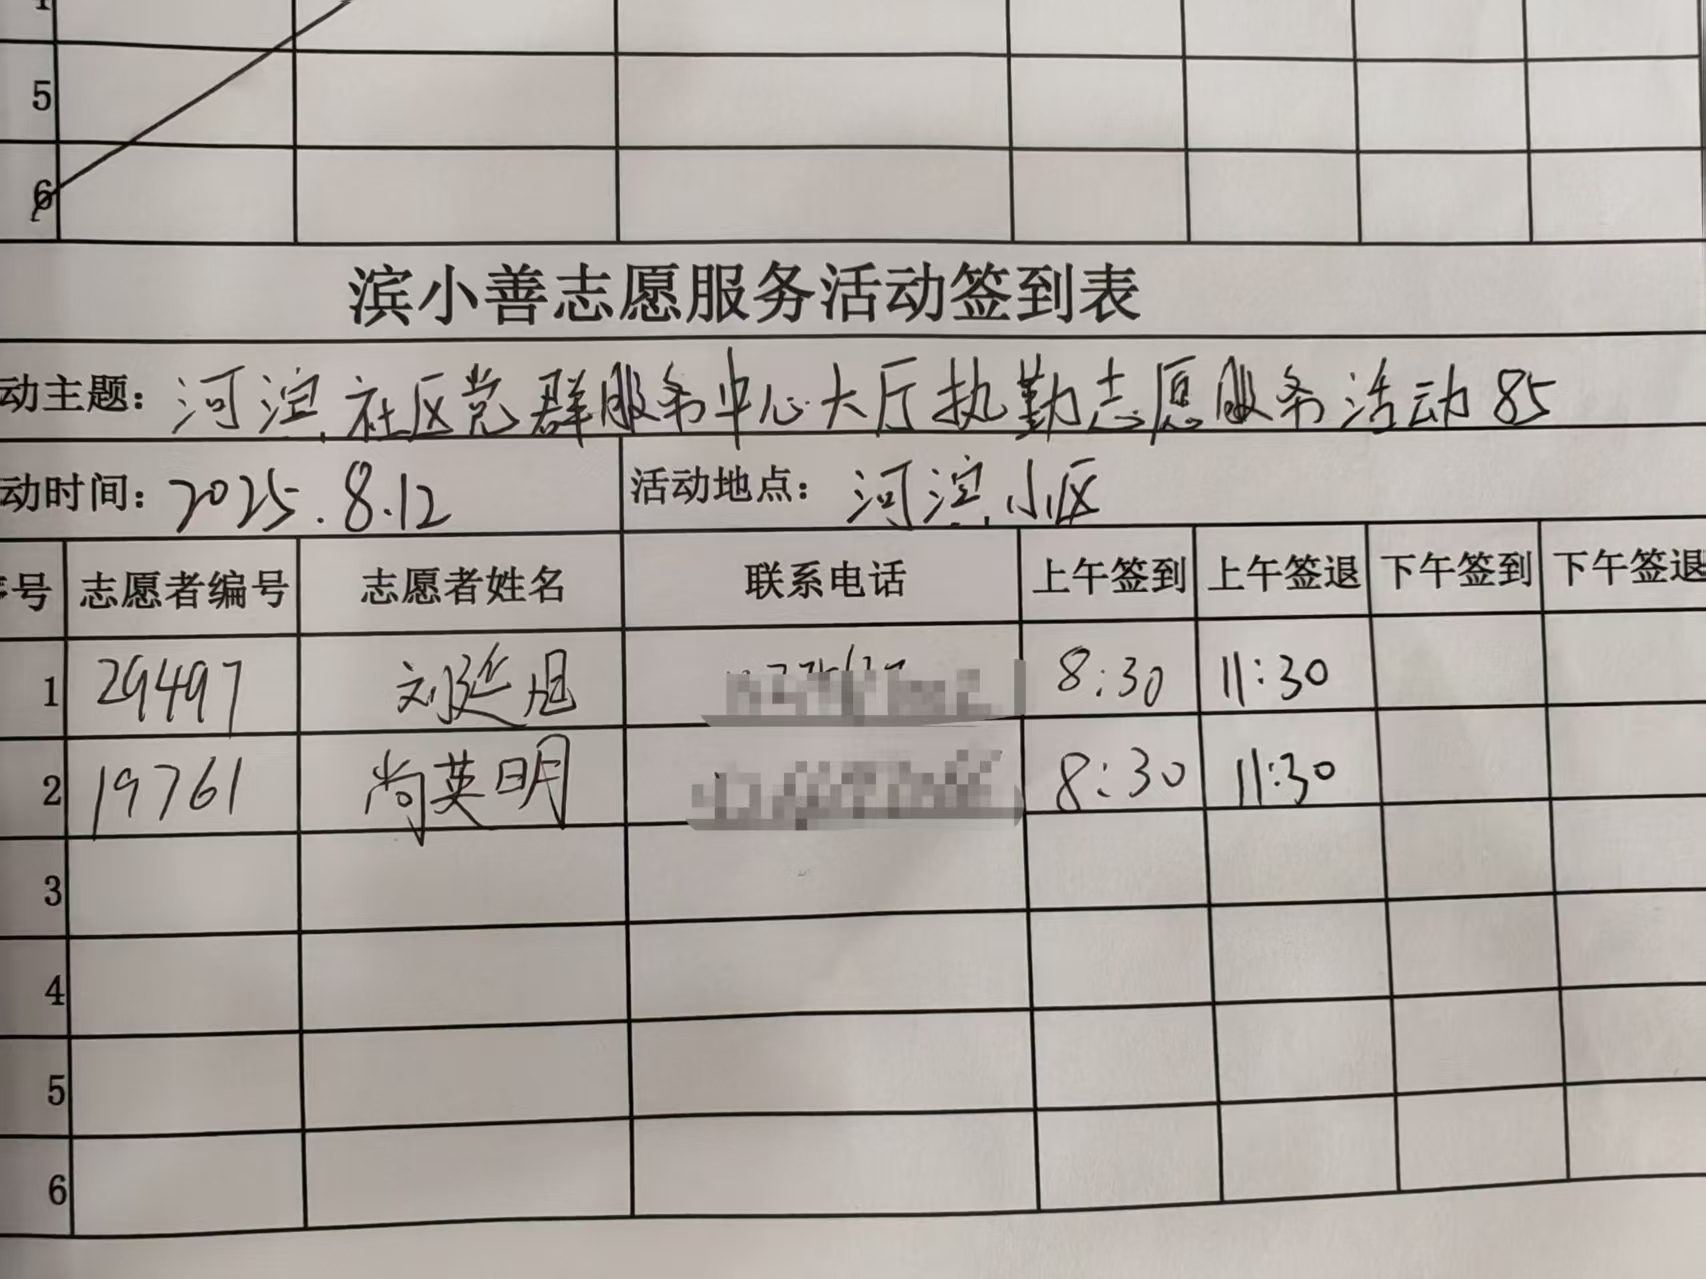 5
6
滨小善志愿服务活动签到表
动主题：河滨社区党群服务中心大厅执勤志愿服务活动85
动时间：2025.8.12 活动地点：河滨小区
号 志愿者编号 志愿者姓名 联系电话 上午签到 上午签退 下午签到 下午签退
1 29497 刘延旭 8:30 11:30
2 19761 尚英明 8:30 11:30
3
4
5
6